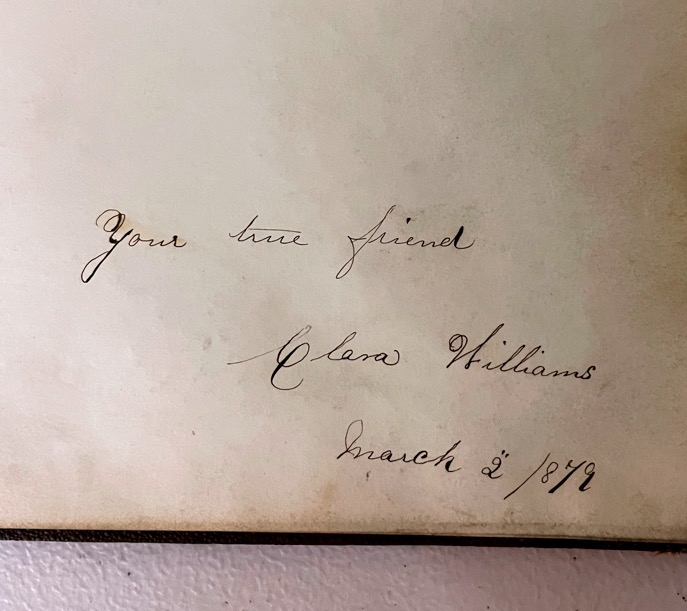 Your true friend
Clara Williams
March 2" 1879